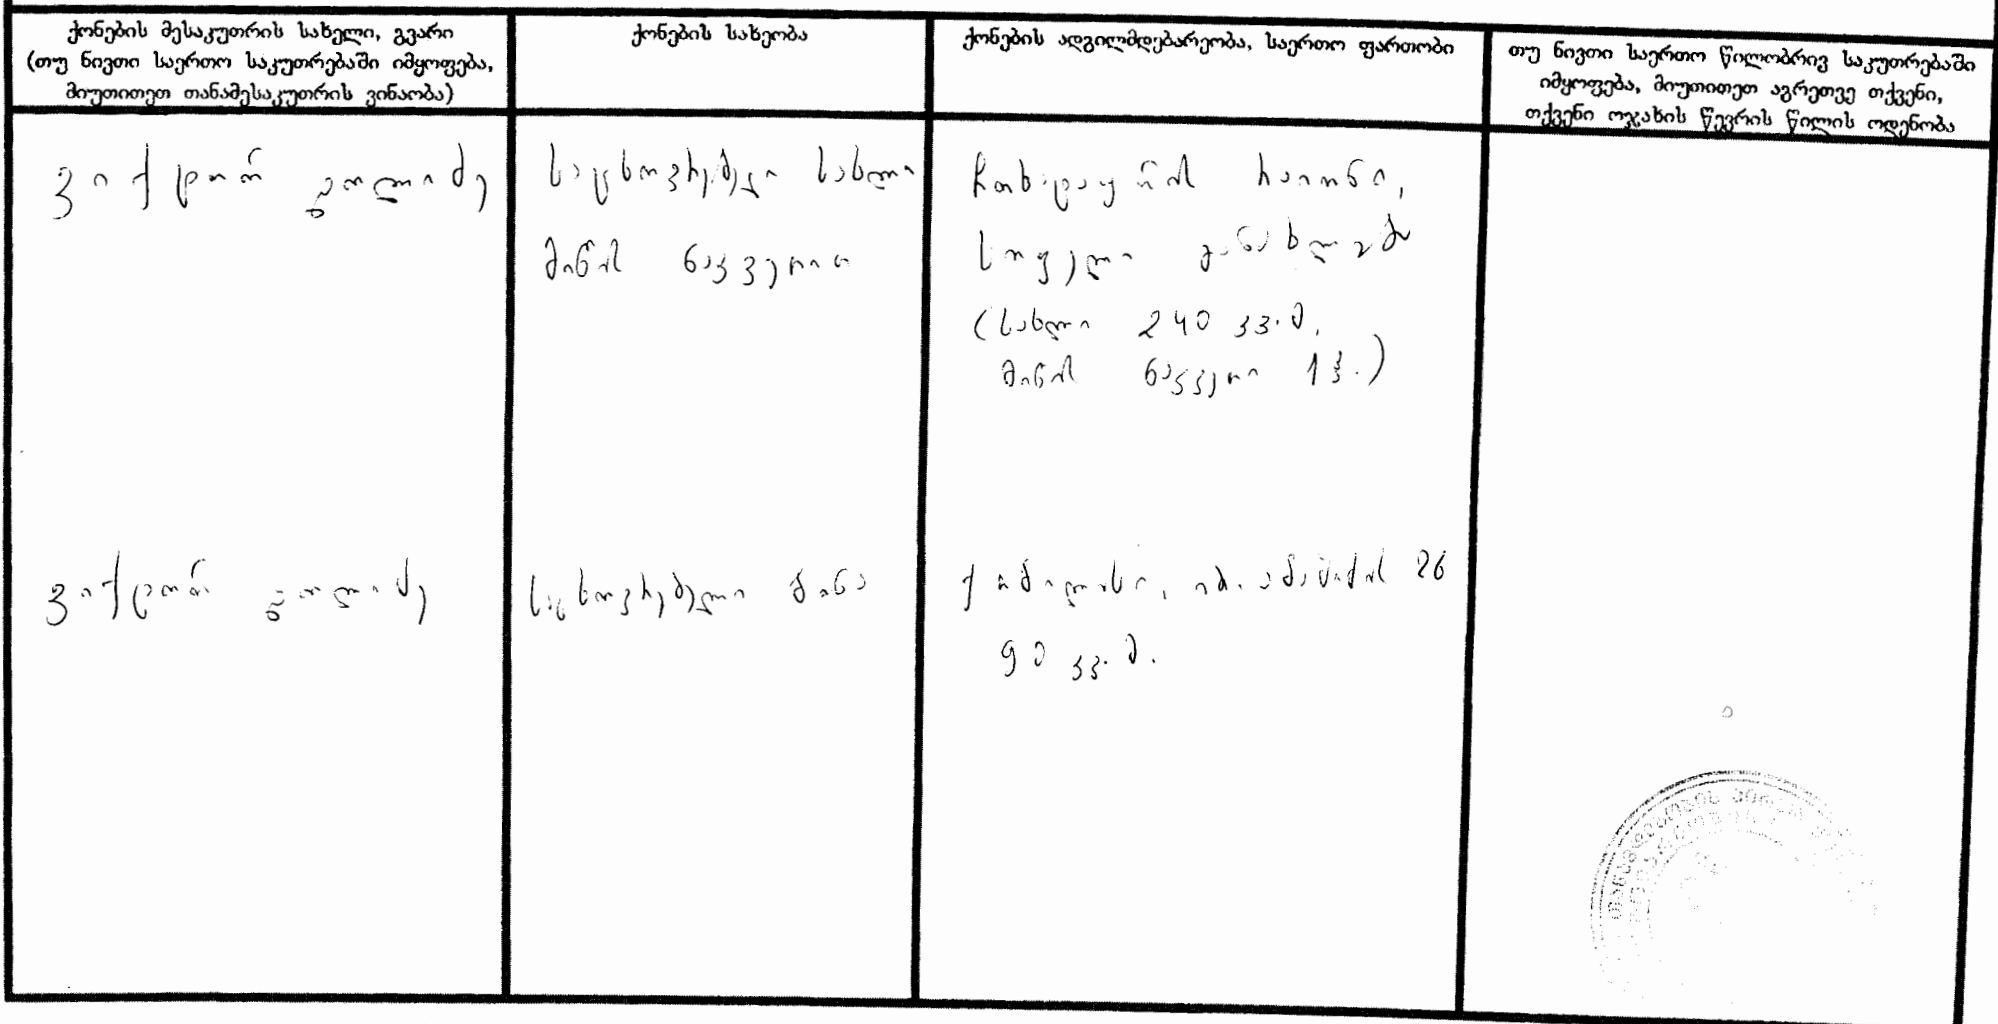 ქონების მესაკუთრის სახელი, გვარი
(თუ ნივთი საერთო საკუთრებაში იმყოფება,
მიუთითეთ თანამესაკუთრის ვინაობა)
ქონების სახეობა
ქონების ადგილმდებარეობა, საერთო ფართობი
თუ ნივთი საერთო წილობრივ საკუთრებაში
იმყოფება, მიუთითეთ აგრეთვე თქვენი,
თქვენი ოჯახის წევრის წილის ოდენობა
ვიქტორ დოლიძე
საცხოვრებელი სახლი
მიწის ნაკვეთით
ჩოხატაურის რაიონი,
სოფელი განახლება
(სახლი 240 კვ.მ.
მიწის ნაკვეთი 1ჰ.)
ვიქტორ დოლიძე
საცხოვრებელი ბინა
ქ თბილისი, 26
90 კვ.მ.